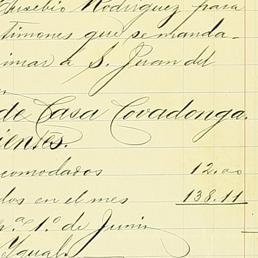 Eusebio Rodriguez para
timones que se manda-
imar á S. Juan del
de Casa Covadonga.
ientes.
comodados 12.00
dos en el mes 138.11
1º de Junio
Ygual